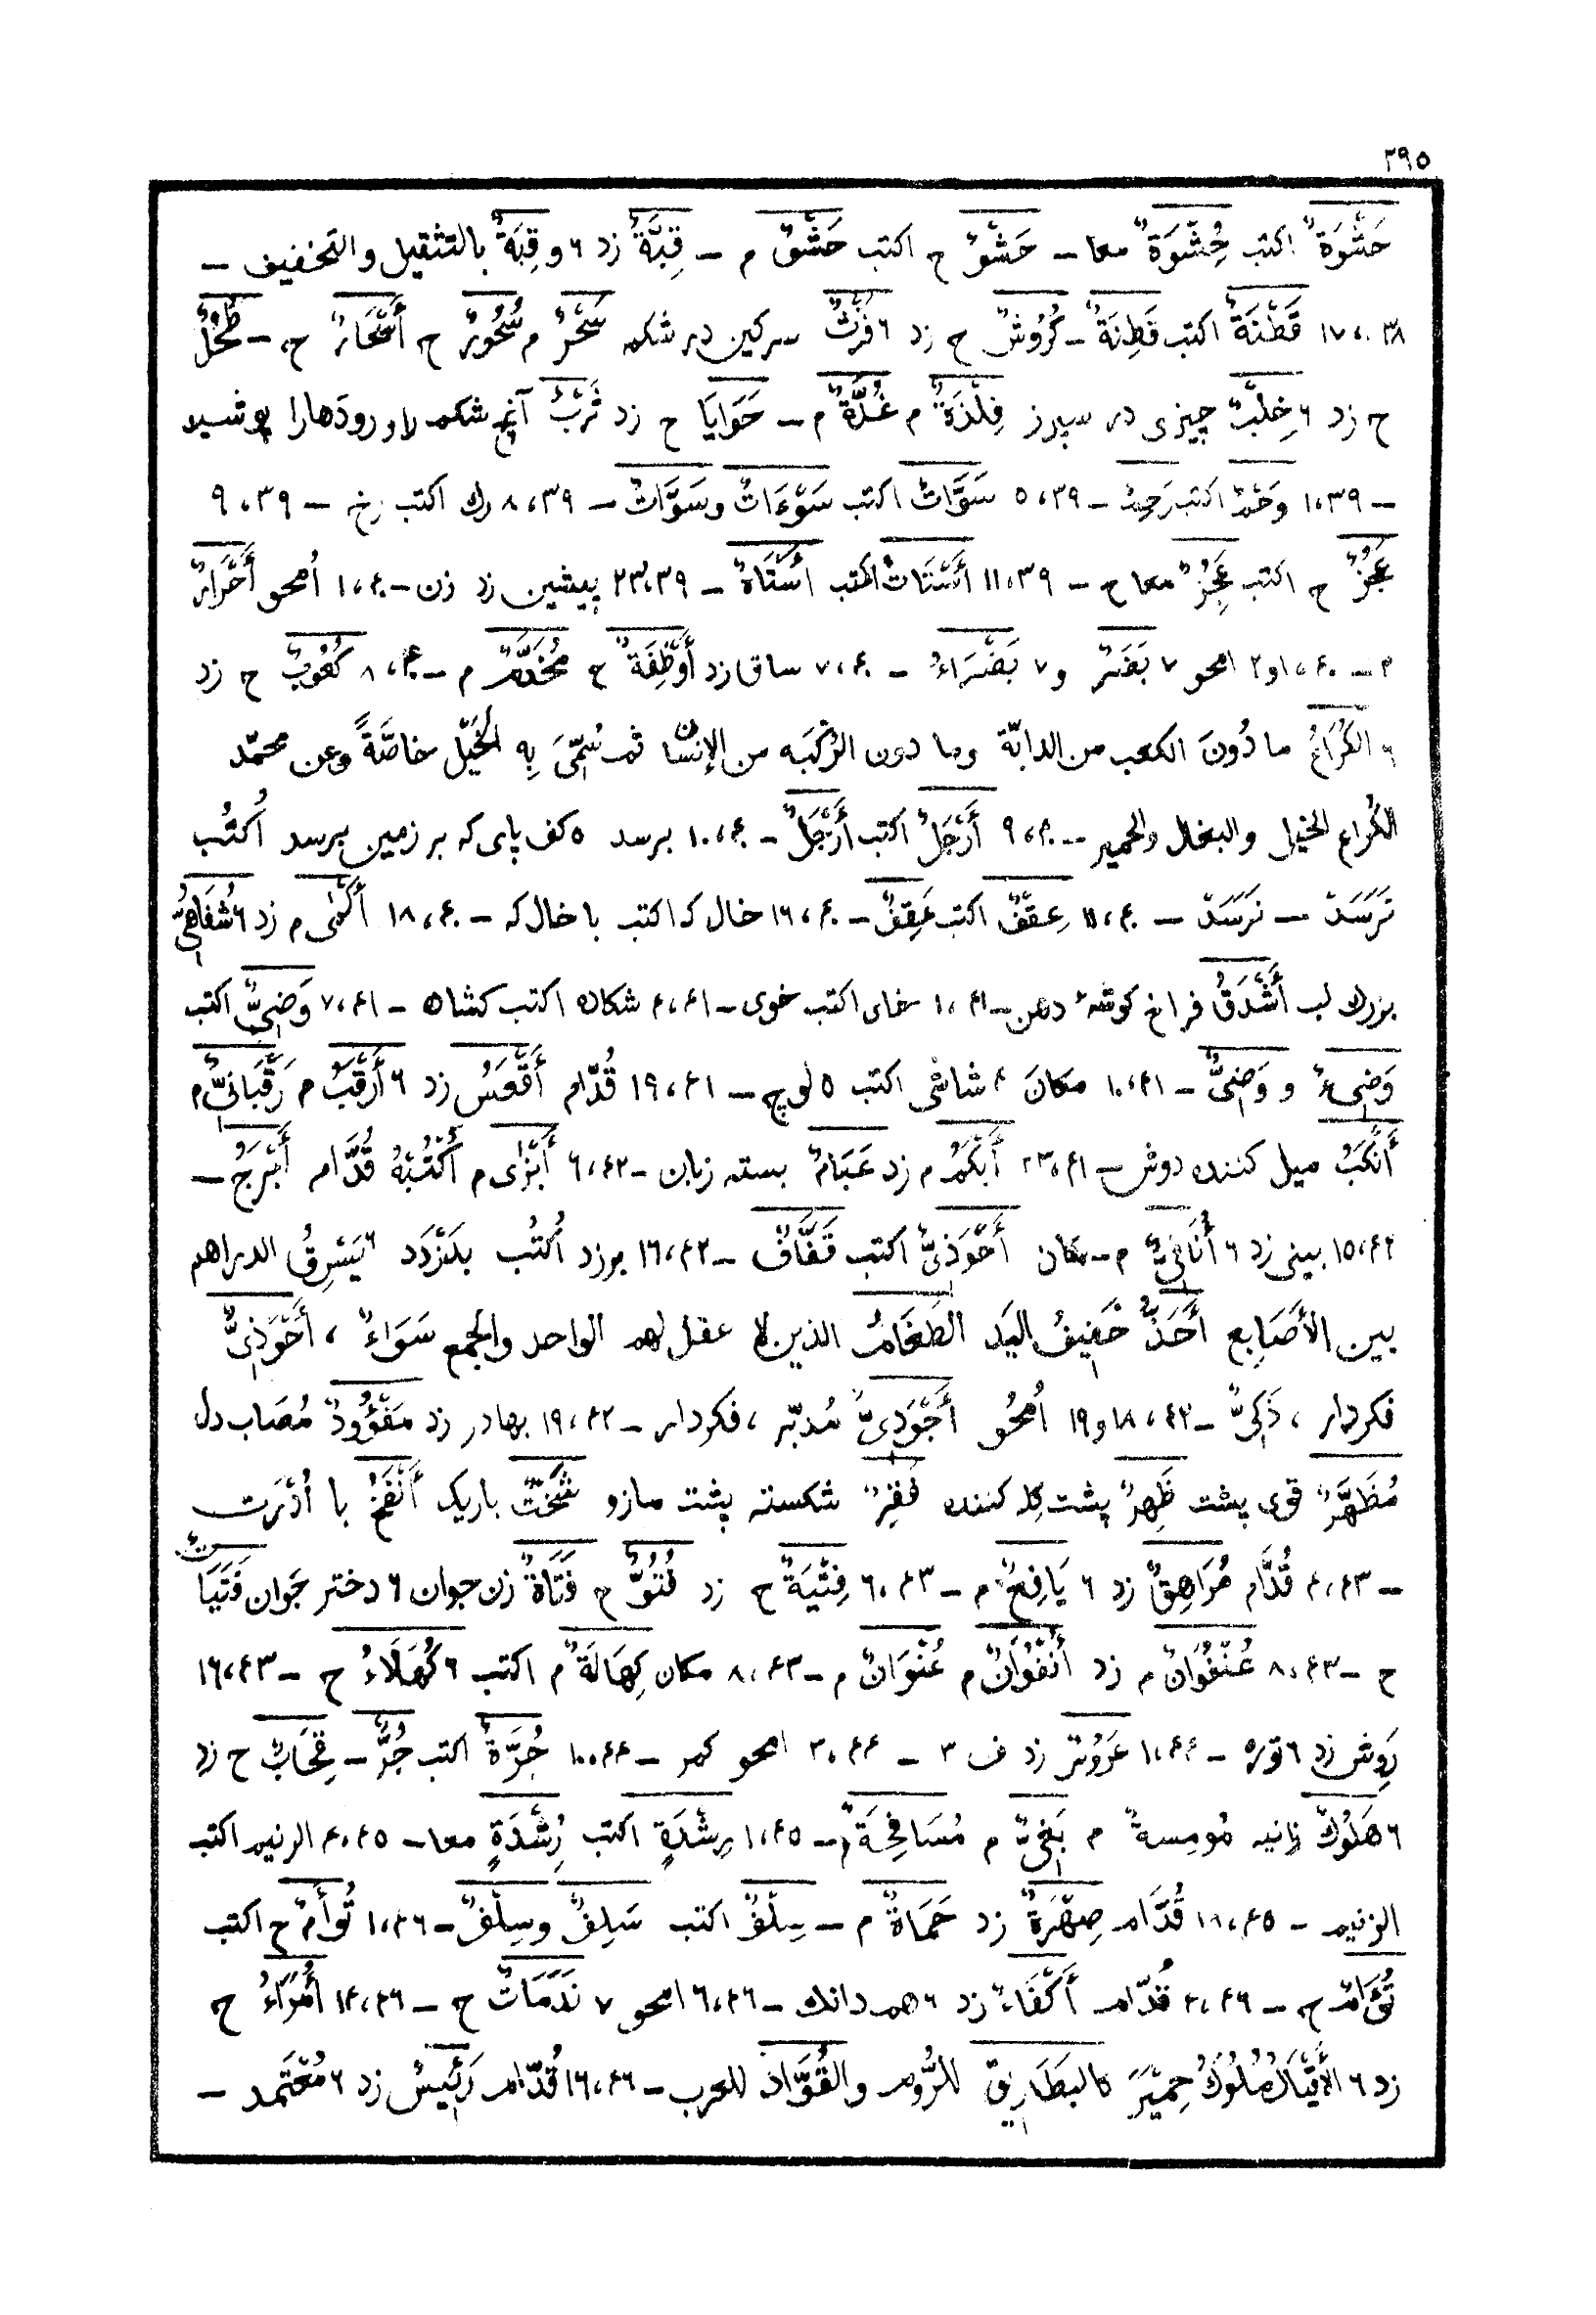 ٢٩٥
حَشْوَةٌ اكتب حُِشْوَةٌ معا ــ حَشْوٌ ح اكتب حَشْوٌ م ــ قِبَّةٌ زد ٦ وقِبَةٌ بالتثقيل والتخفيف ــ
١٧،٣٨ قَطْنَةٌ اكتب قَطِنَةٌ ــ كُرُوشٌ ح زد ٦ فَرْثٌ سركين در شكمه سَحْرٌ م سُحُورٌ ح أَسْحَارٌ ح ــ طُحْلٌ
ح زد ٦ خِلْبٌ چيزى در سپرز فِلْذَةٌ م غُدَّةٌ م ــ حَوَايَا ح زد ثَرْبٌ آنچ شكمه را و رودهارا پوشيد
ــ ١،٣٩ وَحْدٌ اكتب ــ ٥،٣٩ سَوَّاتٌ اكتب سَوْءَاتٌ وسَوَّاتٌ ــ ٨،٣٩ رك اكتب رخ ــ ٩،٣٩
عَجُزٌ ح اكتب عَجُِزٌ معا ح ــ ١١،٣٩ أَسْتَاتٌ اكتب أَسْتَاهٌ ــ ٢٣،٣٩ پيشين زد زن ــ ١،٤٠ اُمحو أَحْرَارٌ
م ــ ١،٤٠ و٢ امحو ٧ بَضَرٌ و٧ بَضْرَاءُ ــ ٧،٤٠ ساق زد أَوْظِفَةٌ ح مُخَدَّمٌ م ــ ٨،٤٠ كُعُوبٌ ح زد
٦ الكُرَاعُ ما دُونَ الكعب من الدابّة وما دون الرُّكبَه من الإنسان ثم سُمِّىَ بِهِ الخَيْلُ خاصَّةً وعن محمّد
الكُراع الخيل والبغال والحمير ــ ٩،٤٠ أَرْجَلُ اكتب أَرْجَلٌ ــ ١٠،٤٠ برسد ٥ كف پاى كه بر زمين برسد اُكتُب
نَرَسَد ــ نَرَسَد ــ ١١،٤٠ عِقْفٌ اكتب عَقِفٌ ــ ١٦،٤٠ خال كه اكتب با خال كه ــ ١٨،٤٠ أَكْشَى م زد ٦ شُفَاهِىٌّ
بزرك لب أَشْدَقُ فراخ كوشهٔ دهن ــ ١،٤١ خاى اكتب خوى ــ ٤،٤١ شكاده اكتب كشاده ــ ٧،٤١ وَضِىٌّ اكتب
وَضِىءٌ و وَضِىٌّ ــ ١٠،٤١ مكانَ ٤ شاشى اكتب ٥ لوچ ــ ١٩،٤١ قُدّام أَقْعَسُ زد ٦ أَرْقَبُ م رَقَبَانِىٌّ م
أَنْكَبُ ميل كننده دوش ــ ٢٣،٤١ أَبْكَمُ م زد عَبَامٌ بسته زبان ــ ٦،٤٢ أَبْزَى م اُكْتُبْهُ قُدَّام أَبْرَجُ ــ
١٥،٤٢ بينى زد ٦ أُنَافِىٌّ م ــ مكان أَحْوَذِىٌّ اكتب قَفَّافٌ ــ ١٦،٤٢ بورزد اُكتُب بدزدد ٦ يَسْرِقُ الدراهم
بين الأَصَابِع أَحَذُّ خَفِيفُ اليَد الطَغَامُ الذين لا عقل لهم الواحد والجمع سَوَاءٌ ، أَحْوَذِىٌّ
فكردار ، ذَكِىٌّ ــ ١٨،٤٢ و١٩ اُمحُو أَحْوَذِىٌّ مُدبّر ، فكردار ــ ١٩،٤٢ بهادر زد مَفْؤُودٌ مُصَاب دل
مُظَهَّرٌ قوى پشت ظَهِرٌ پشت كله كننده فَقِرٌ شكسته پشت مازو شَخْتٌ باريك أَنْفَخُ با اُدْرَت
ــ ٤،٤٣ قُدَّام مُرَاهِقٌ زد ٦ يَافِعٌ م ــ ٦،٤٣ فِتْيَةٌ ح زد فُتُوٌّ ح فَتَاةٌ زن جوان ٦ دختر جَوان فَتَيَاتٌ
ح ــ ٨،٤٣ عُنْفُوَانٌ م زد أُنْفُوَانٌ م عُنْوَانٌ م ــ ٨،٤٣ مكان كِهَالَةٌ م اكتب ٦ كُهَلَاءُ ح ــ ١٦،٤٣
رَوِش زد ٦ توره ــ ١،٤٤ عَرُوسٌ زد ف ٣ ــ ٣،٤٤ امحو كمر ــ ١٠،٤٤ حُرَّةٌ اكتب حُرٌّ ــ قِحَابٌ ح زد
٦ هَلُوكٌ زانيه مُومِسةٌ م بَغِىٌّ م مُسَافِحَةٌ م ــ ١،٤٥ رِشْدَةٍ اكتب رَِشْدَةٍ معا ــ ٤،٤٥ الرنيم اكتب
الزنيم ــ ١٨،٤٥ قُدَّام صِهْرَةٌ زد حَمَاةٌ م ــ سِلْفٌ اكتب سَلِفٌ وسِلْفٌ ــ ١،٤٦ تُوأَمٌ ح اكتب
تُؤَامٌ ح ــ ٢،٤٦ قُدّام أَكْفَاءٌ زد ٦ هم دانك ــ ٦،٤٦ امحو ٧ نَدَمَاتٌ ح ــ ١٤،٤٦ أُمَرَاءُ ح
زد ٦ الأَقْيَالُ مُلُوكُ حِمْيَرَ كالبَطَارِيق للرُّوم والقُوَّاد للعرب ــ ١٦،٤٦ قُدّام رَئِيسٌ زد ٦ مُعْتَمد ــ